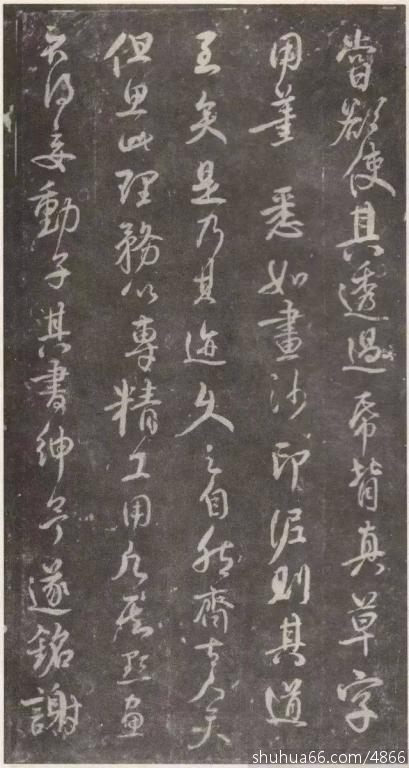 嘗欲使其透過帋背真草字
用筆悉如畫沙印泥則其道
至矣是乃其迹久之自然齊古人矣
但思此理務以專精工用點畫
不得妄動子其書紳予遂銘謝
shuhua66.com/4866